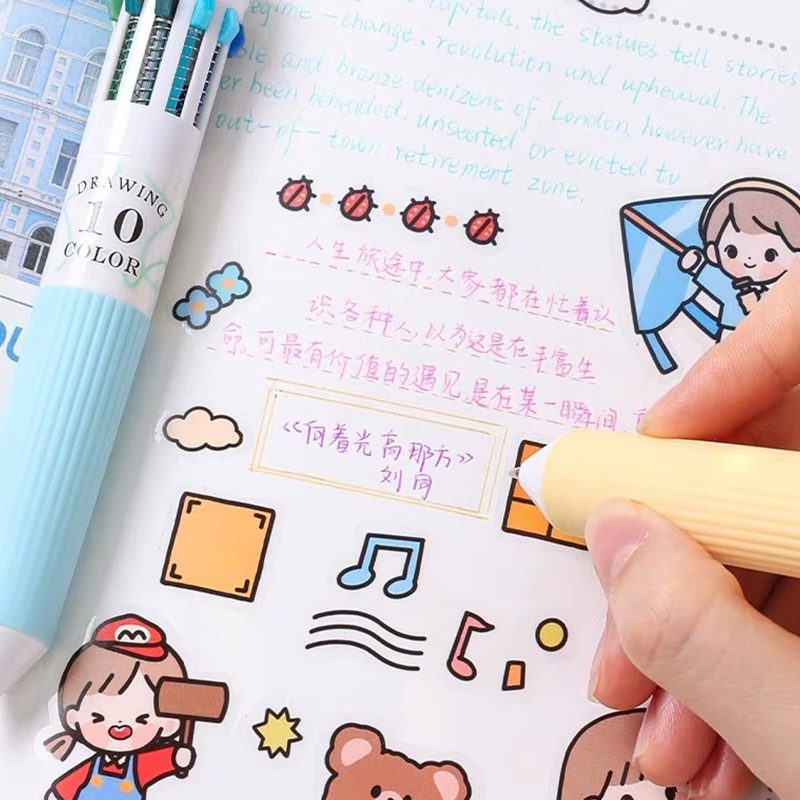 capitals, the statues tell stories
regime-change, revolution and upheaval. The
and bronze denizens of London, however have
er been beheaded, unseated or evicted to
out-of-town retirement zone.
人生旅途中,大家都在忙着认
识各种人,以为这是在丰富生
命,可最有价值的遇见是在某一瞬间,
《向着光亮那方》
刘同
DRAWING
10
COLOR
M